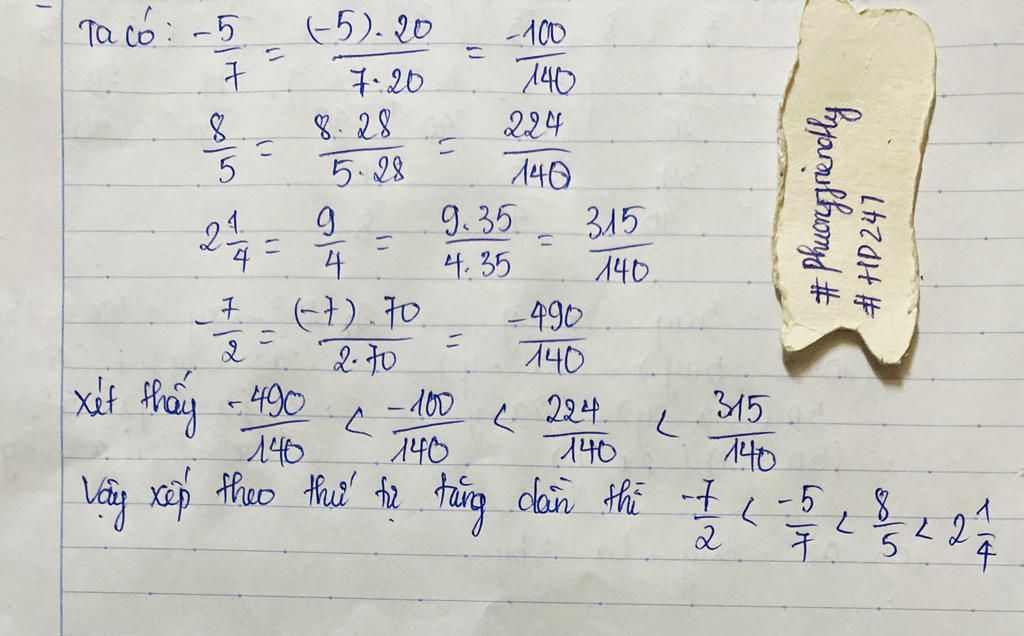 Ta có: -5/7 = (-5).20/7.20 = -100/140
8/5 = 8.28/5.28 = 224/140
2 1/4 = 9/4 = 9.35/4.35 = 315/140
-7/2 = (-7).70/2.70 = -490/140
Xét thấy -490/140 < -100/140 < 224/140 < 315/140
Vậy xếp theo thứ tự tăng dần thì -7/2 < -5/7 < 8/5 < 2 1/4
# HD247